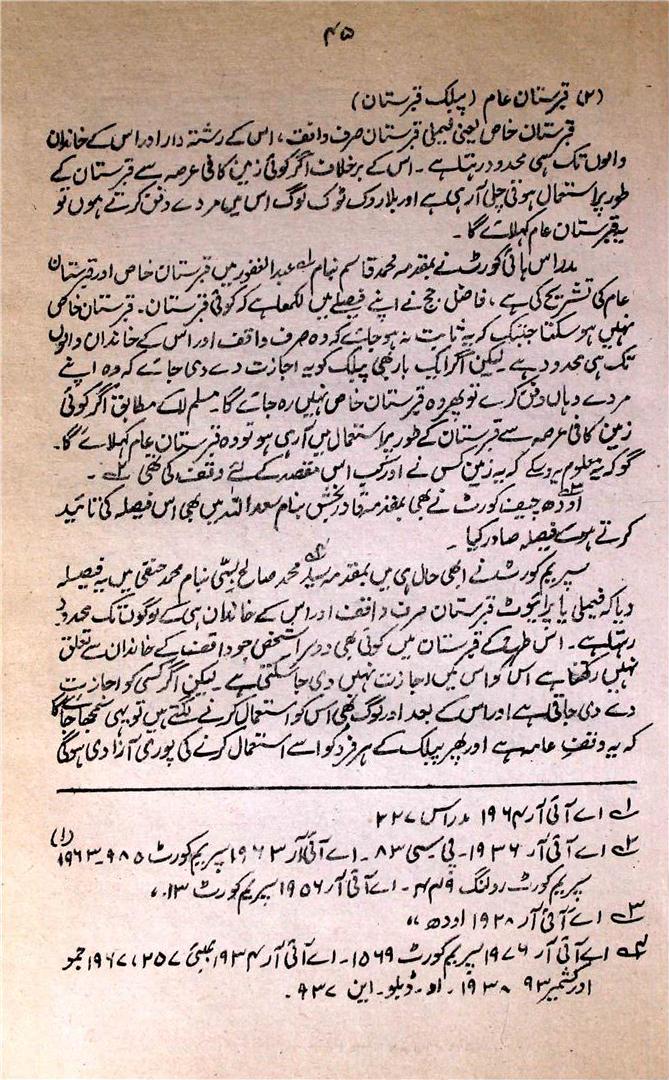 ۴۵
(۲) قبرستان عام (پبلک قبرستان)
قبرستان خاص یعنی فیملی قبرستان صرف واقف، اس کے رشتہ دار اور اس کے خاندان
والوں تک ہی محدود رہتا ہے۔ اس کے برخلاف اگر کوئی زمین کافی عرصہ سے قبرستان کے
طور پر استعمال ہوتی چلی آرہی ہے اور بلا روک ٹوک لوگ اس میں مردے دفن کرتے ہوں تو
یہ قبرستان عام کہلائے گا۔
مدراس ہائی کورٹ نے بمقدمہ محمد قاسم بنام عبدالغفور میں قبرستان خاص اور قبرستان
عام کی تشریح کی ہے، فاضل جج نے اپنے فیصلے میں لکھا ہے کہ کوئی قبرستان۔ قبرستان خاص
نہیں ہو سکتا جب تک کہ یہ ثابت نہ ہو جائے کہ وہ صرف واقف اور اس کے خاندان والوں
تک ہی محدود ہے۔ لیکن اگر ایک بار بھی پبلک کو یہ اجازت دے دی جائے کہ وہ اپنے
مردے وہاں دفن کرے تو پھر وہ قبرستان خاص نہیں رہ جائے گا۔ مسلم لاء کے مطابق اگر کوئی
زمین کافی عرصہ سے قبرستان کے طور پر استعمال میں آرہی ہو تو وہ قبرستان عام کہلائے گا۔
گو کہ یہ معلوم نہ ہو سکے کہ یہ زمین کس نے اور کب اس مقصد کے لئے وقف کی تھی ۲؎۔
اودھ چیف کورٹ نے بھی بمقدمہ قادر بخش بنام سعد اللہ میں بھی اس فیصلہ کی تائید
کرتے ہوئے فیصلہ صادر کیا۔
سپریم کورٹ نے ابھی حال ہی میں بمقدمہ سید محمد صالح لبئی بنام محمد حنفی میں یہ فیصلہ
دیا کہ فیملی یا پرائیوٹ قبرستان صرف واقف اور اس کے خاندان ہی کے لوگوں تک محدود
رہتا ہے۔ اس طرح کے قبرستان میں کوئی بھی دوسرا شخص جو واقف کے خاندان سے تعلق
نہیں رکھتا ہے اس کو اس میں اجازت نہیں دی جا سکتی ہے۔ لیکن اگر کسی کو اجازت
دے دی جاتی ہے اور اس کے بعد اور لوگ بھی اس کو استعمال کرنے لگتے ہیں تو یہی سمجھا جائے گا
کہ یہ وقف عامہ ہے اور پھر پبلک کے ہر فرد کو اسے استعمال کرنے کی پوری آزادی ہوگی
۱؎ اے آئی آر ۱۹۶۴ مدراس ۲۲۷
۲؎ اے آئی آر ۱۹۳۶۔ پی سی ۸۳۔ اے آئی آر ۱۹۶۳ سپریم کورٹ ۹۸۵۔ ۱۹۶۳ (۱)
سپریم کورٹ رولنگ ۴۴۹۔ اے آئی آر ۱۹۵۶ سپریم کورٹ ۱۳
۳؎ اے آئی آر ۱۹۲۸ اودھ
۴؎ اے آئی آر ۱۹۷۶ سپریم کورٹ ۱۵۶۹۔ اے آئی آر ۱۹۳۴ بمبئی ۲۵۷، ۱۹۶۷ جمو
اور کشمیر ۹۳ ۱۹۳۸۔ او۔ ڈبلو۔ این ۹۳۷۔